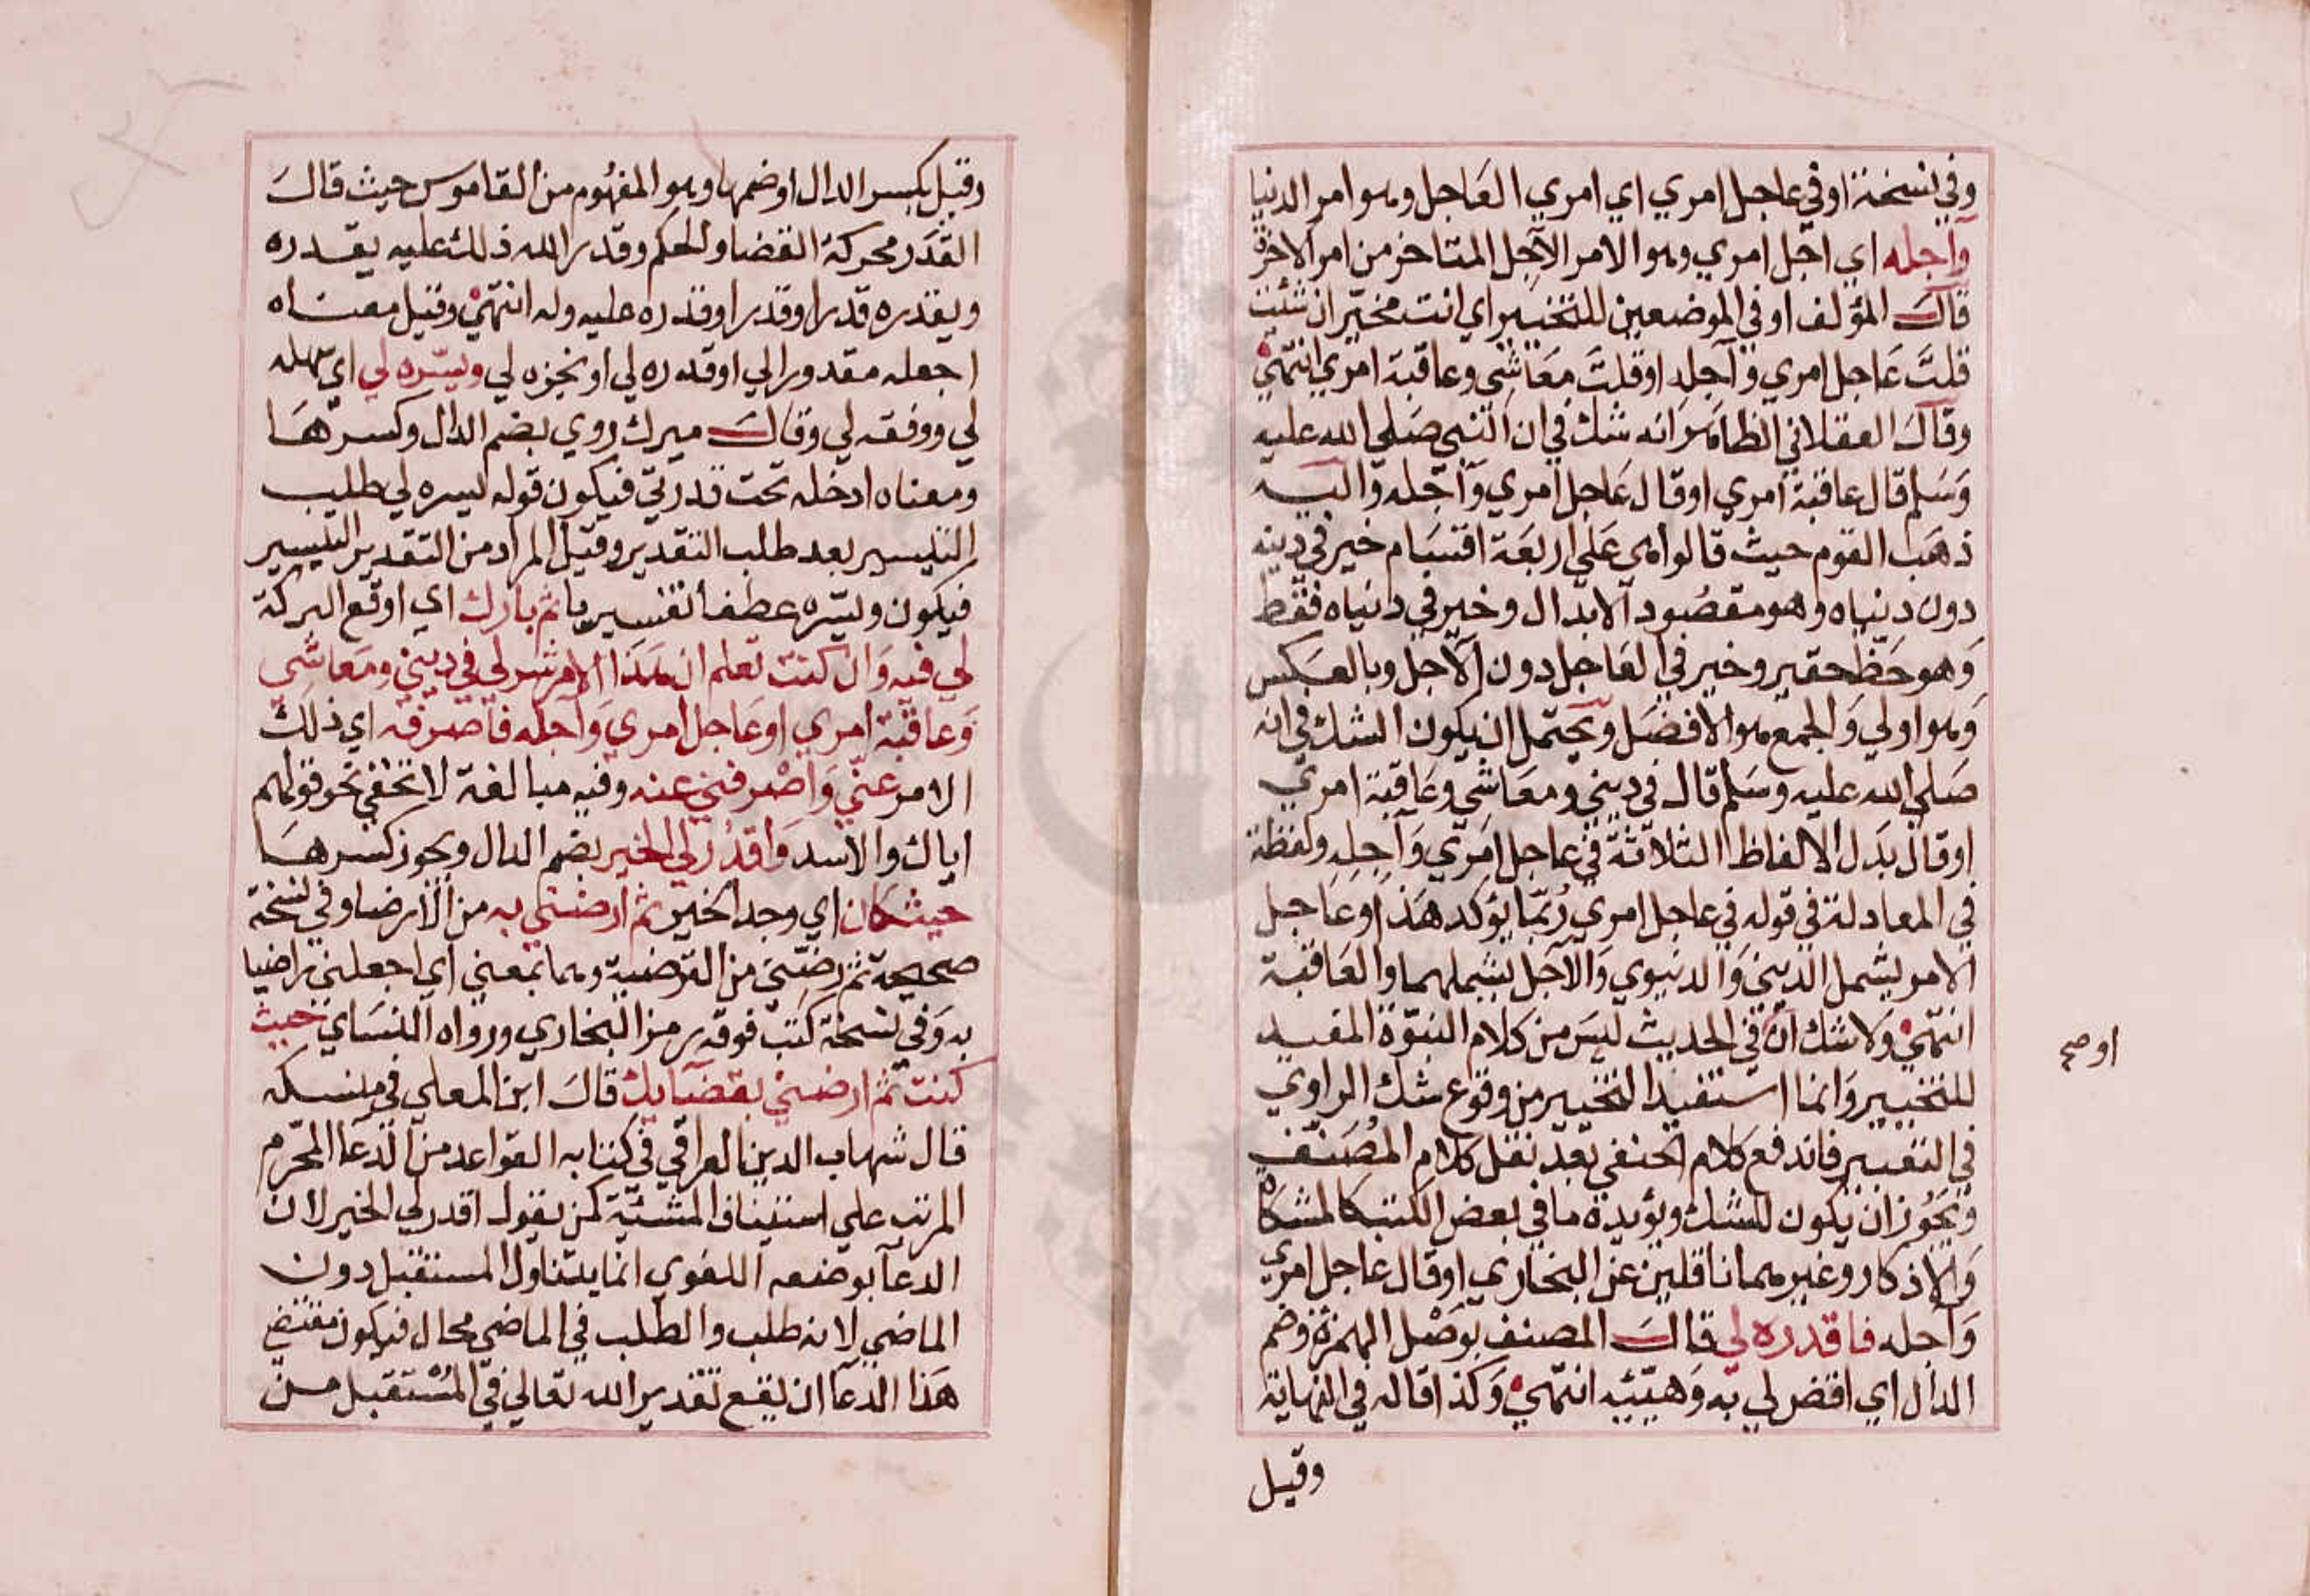 وفي نسخة او في عاجل امري اي امري العاجل وهو امر الدنيا
وآجله اي آجل امري وهو الامر الآجل المتاخر من امر الاخرة
قال المؤلف او في الموضعين للتخيير اي انت مخير ان شئت
قلت عَاجل امري وآجله او قلت مَعَاشي وعاقبة امري انتهى
وقال العقلاني الظاهر انه شك في ان النبي صَلى الله عليه
وَسَلم قال عاقبة امري او قال عَاجل امري وَآجله واليه
ذهَب القوم حيث قالوا هي عَلى اربَعَة اقسَام خير في دينه
دون دنياه وهو مقصُود الابدال وخير في دنياه فقط
وَهو حَظ حقير وخير في العَاجل دون الآجل وبالعَكس
وَهو اولي وَالجمع هو الافضَل ويحتمل ان يكون الشك في انه
صَلى الله عليه وسَلم قال في ديني ومعَاشي وعَاقبة امري
او قال بَدَل الالفاظ الثلاثة في عاجل امري وَآجِله ولفظة
في المعادلة في قوله في عاجل امري رُبّما يؤكد هَذا وعَاجل
الامر يشمل الديني وَالدنيوي وَالآجل يشملهما والعَاقبة
انتهى وَلا شك ان في الحديث ليسَ من كلام النبوّة المفيد
للتخيير وَانما استفيد التخيير من وقوع شك الراوي
في التعبير فاندفع كلام الحنفي بعد نقل كلام المُصَنف
وَيَجُوز ان يكون للشك ويؤيده ما في بعض الكتب كالمشكاة
وَالاذكار وغيرهما ناقلين عن البخاري او قال عاجل امري
وَآجله فاقدره لي قالَ المصنف بوَصْل الهمزة وضم
الدال اي اقض لي به وَهيّئه انتهى وَكذا قاله في النهاية
وقيل
او صح
وقيل بكسر الدال او ضمها وهو المفهُوم من القاموس حيث قالَ
القَدَر محركة القضا والحكم وقدر الله ذلك عليه يقدره
ويقدره قدرا وقدرا وقدره عليه وله انتهى وقيل معناه
اجعله مقدورا لي او قدره لي او نجزه لي ويسّره لي اي سهله
لي ووفقه لي وقالَ ميرك روي بضم الدال وكسرهَا
ومعناه ادخله تحت قدرتي فيكون قوله ليسره لي طلب
التيسير بعد طلب التقدير وقيل المراد من التقدير التيسير
فيكون ويسّره عطفا تفسيريا ثم بارك اي اوقع البركة
لي فيه وَان كنت تعلم ان هَذا الامر شر لي في ديني ومَعَاشي
وَعاقبة امري او عَاجل امري وَآجله فاصرفه اي ذلك
الامر عنّي وَاصْرفني عنه وفيه مبالغة لا تخفى نحو قولهم
اياك والاسد وَاقدُر لي الخير بضم الدال ويجوز كسرهَا
حيث كان اي وجد الخير ثم ارضني به من الارضا وفي نسخة
صحيحة ثم رضّني من الترضية وهما بمعني اي اجعلني راضيا
به وَفي نسخة كتب فوقه رمز البخاري ورواه النسَاي حيث
كنت ثم ارضني بقضايك قالَ ابن المعلي في منسكه
قال شهاب الدين العراقي في كتابه القواعد من الدعا المحرم
المرتب علي استيناف المشئيّة كمن يقول اقدر لي الخير لان
الدعآ بوضعه اللغوي انما يتناول المستقبل دون
الماضي لانه طلب والطلب في الماضي محال فيكون مقتضى
هَذا الدعآ ان يقع تقدير الله تعالي في المُسْتقبل من